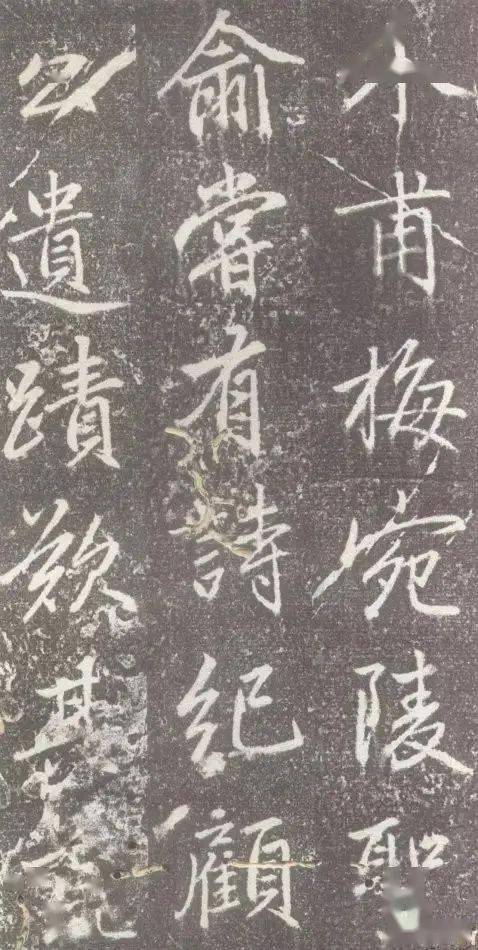 介甫梅宛陵聖
俞嘗有詩紀顧
遺蹟欲其